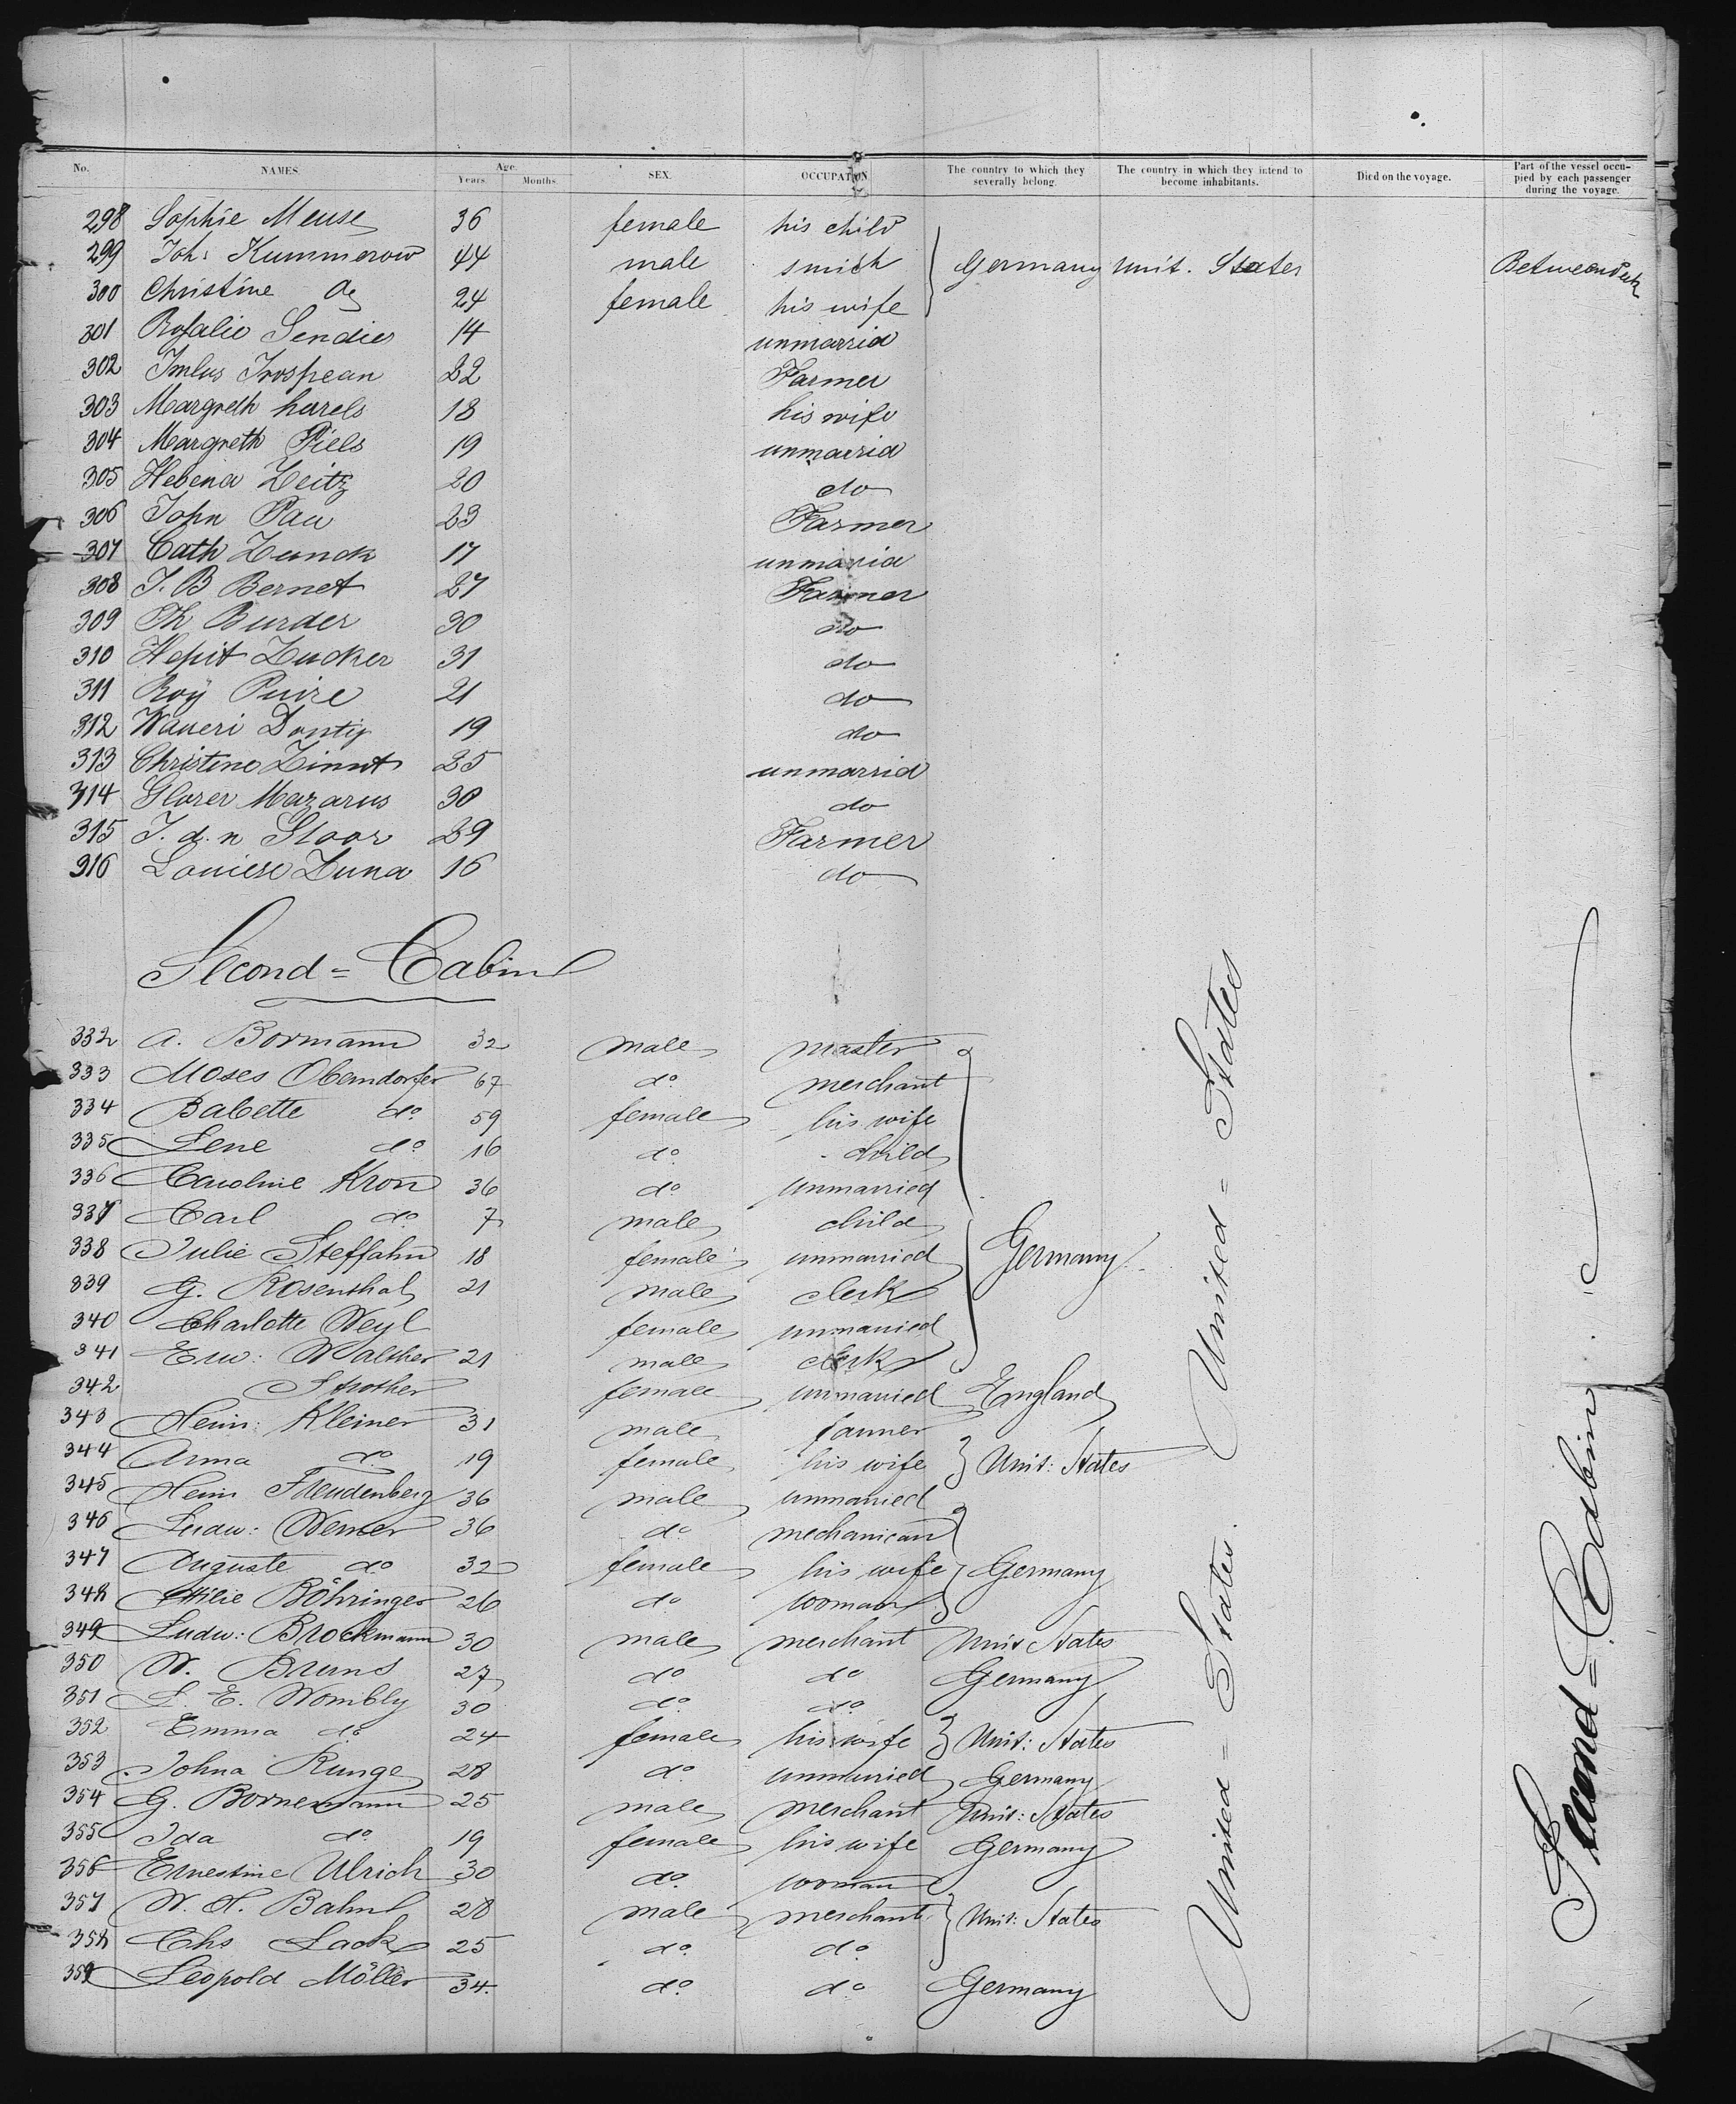 No. NAMES. Age. Years. Months. SEX. OCCUPATION The country to which they severally belong. The country in which they intend to become inhabitants. Died on the voyage. Part of the vessel occupied by each passenger during the voyage.
298 Sophie Meuse 36 female his child
299 Joh: Kummerow 44 male smith Germany Unit. States Betweendeck
300 Christine do 24 female his wife
301 Rosalie Sendies 14 unmarried
302 22 Farmer
303 Margreth 18 his wife
304 Margreth Piels 19 unmarrid
305 Hebena Zeitz 20 do
306 John Pau 23 Farmer
307 Cath Zunck 17 unmarid
308 J. B Bernet 27 Farmer
309 Th Burder 30 do
310 Hepit Zucker 31 do
311 Roÿ Puire 21 do
312 Waueri 19 do
313 Christine Zinnt 25 unmarrid
314 Glorer Mazarus 30 do
315 J. d. n Sloor 29 Farmer
316 Louiese Zuna 16 do
Second = Cabin
332 A. Bormann 32 male master
333 Moses Oberndorfer 67 do merchant
334 Babette do 59 female his wife
335 Lene do 16 do child
336 Caroline Kron 36 do unmarried
337 Carl do 7 male child
338 Julie Steffahn 18 female unmarried Germany
339 G. Rosenthal 21 male clerk
340 Charlotte Weyl female unmarried
341 Erw: Walther 21 male clerk
342 Strother female unmarried England
343 Heinr: Kleiner 31 male farmer
344 Anna do 19 female his wife Unit: States
345 Heinr Freudenberg 36 male unmarried
346 Ludw: Werner 36 do mechanican
347 Auguste do 32 female his wife Germany
348 Ottilie Böhringer 26 do woman
349 Ludw: Brockmann 30 male merchant Unit States
350 W. Bruns 27 do do Germany
351 L. E. Wombly 30 do do
352 Emma do 24 female his wife Unit: States
353 Johna Runge 28 do unmarried Germany
354 G. Bornemann 25 male merchant Unit: States
355 Ida do 19 female his wife Germany
356 Ernestine Ulrich 30 do woman
357 W. H. Bahnl 28 male merchant Unit: States
358 Chs Lack 25 do do
359 Leopold Möller 34. do do Germany
United = States
United = States.
Second = Cabin